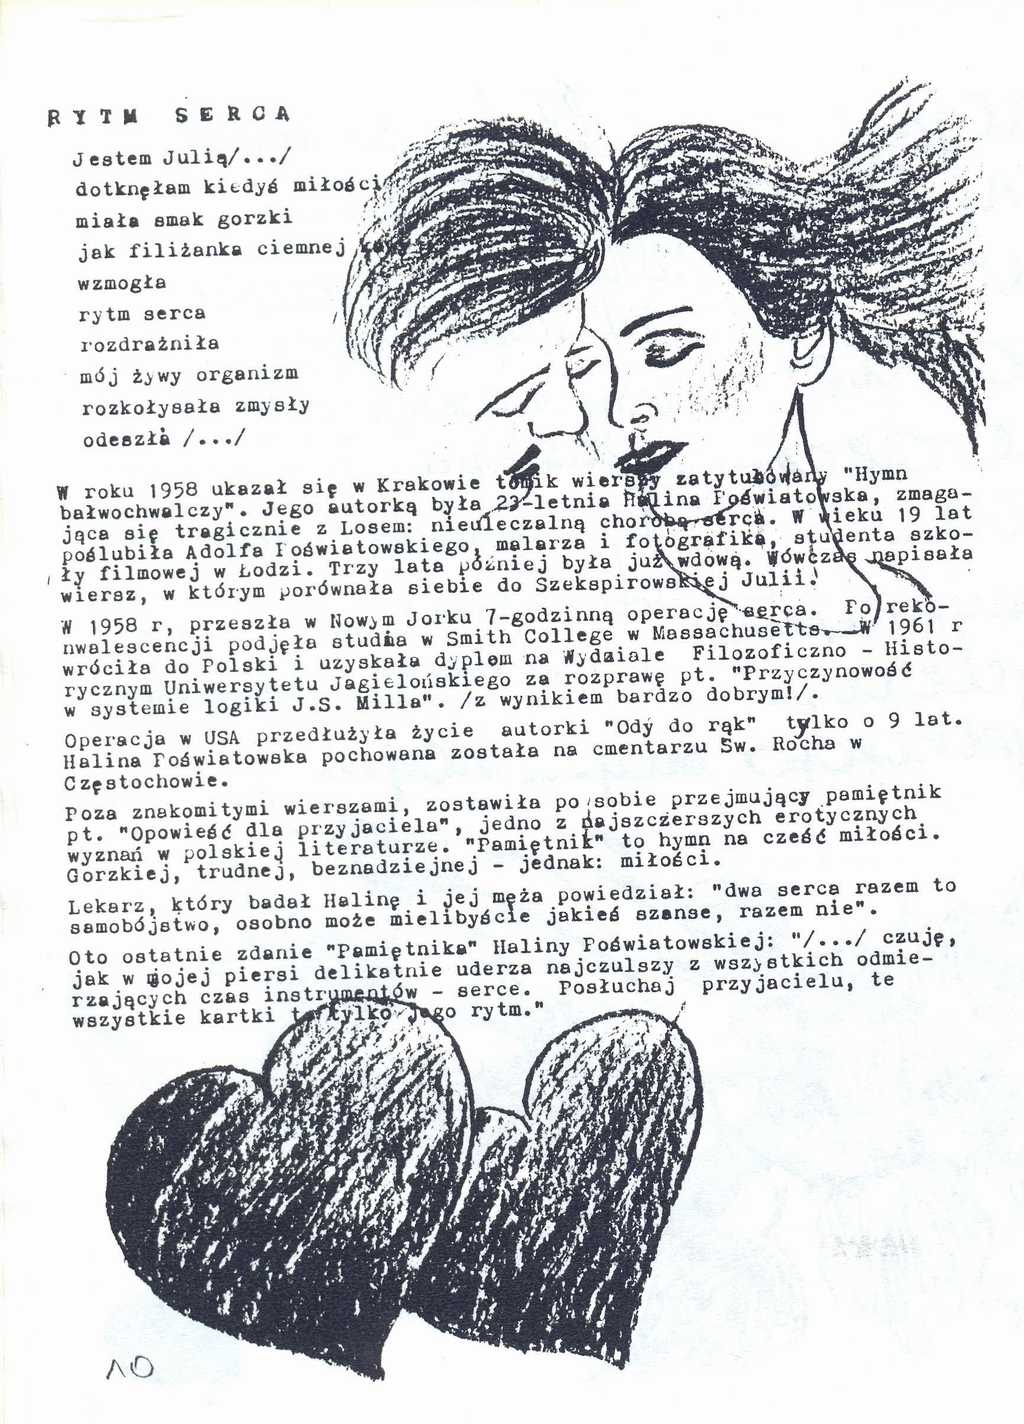 RYTM SERCA
Jestem Julią/.../
dotknęłam kiedyś miłości
miała smak gorzki
jak filiżanka ciemnej
wzmogła
rytm serca
rozdrażniła
mój żywy organizm
rozkołysała zmysły
odeszła /.../
W roku 1958 ukazał się w Krakowie tomik wierszy zatytułowany "Hymn
bałwochwalczy". Jego autorką była 23-letnia Halina Poświatowska, zmaga-
jąca się tragicznie z Losem: nieuleczalną chorobą serca. W wieku 19 lat
poślubiła Adolfa Poświatowskiego, malarza i fotografika, studenta szko-
ły filmowej w Łodzi. Trzy lata później była już wdową. Wówczas napisała
wiersz, w którym porównała siebie do Szekspirowskiej Julii.
W 1958 r, przeszła w Nowym Jorku 7-godzinną operację serca. Po reko-
nwalescencji podjęła studia w Smith College w Massachusetts. W 1961 r
wróciła do Polski i uzyskała dyplom na Wydziale Filozoficzno - Histo-
rycznym Uniwersytetu Jagielońskiego za rozprawę pt. "Przyczynowość
w systemie logiki J.S. Milla". /z wynikiem bardzo dobrym!/.
Operacja w USA przedłużyła życie autorki "Ody do rąk" tylko o 9 lat.
Halina Poświatowska pochowana została na cmentarzu Św. Rocha w
Częstochowie.
Poza znakomitymi wierszami, zostawiła po sobie przejmujący pamiętnik
pt. "Opowieść dla przyjaciela", jedno z najszczerszych erotycznych
wyznań w polskiej literaturze. "Pamiętnik" to hymn na cześć miłości.
Gorzkiej, trudnej, beznadziejnej - jednak: miłości.
Lekarz, który badał Halinę i jej męża powiedział: "dwa serca razem to
samobójstwo, osobno może mielibyście jakieś szanse, razem nie".
Oto ostatnie zdanie "Pamiętnika" Haliny Poświatowskiej: "/.../ czuję,
jak w mojej piersi delikatnie uderza najczulszy z wszystkich odmie-
rzających czas instrumentów - serce. Posłuchaj przyjacielu, te
wszystkie kartki to tylko jego rytm."
10